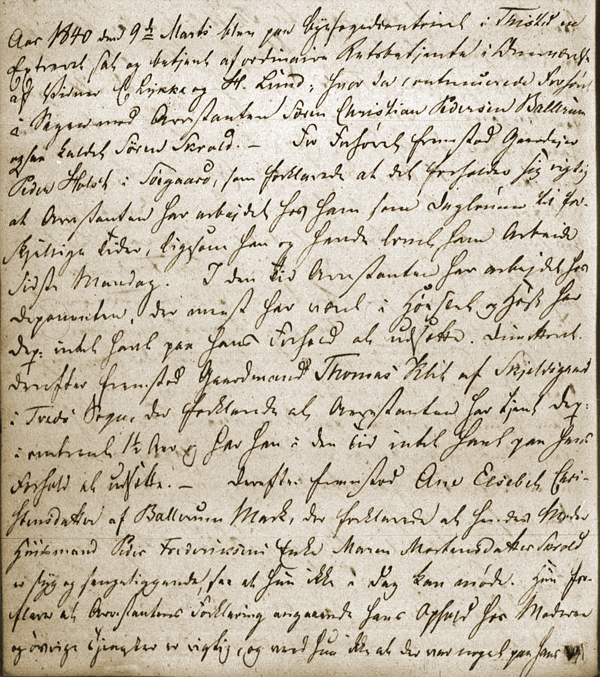 Aar 1840 den 9de Marts blev paa Byfogedcontoiret i Thisted en
Extraret sat og betjent af ordinaire Retsbetjente i Overværelse
af Vidner C. Lykke og H. Lund, hvor da continuerede Forhør
i Sagen mod Arrestanten Søren Christian Pedersen Ballerum
ogsaa kaldet Søren Skrald. — For Forhøret fremstod Gaardejer
Peder Holst i Torpgaard, som forklarede at det forholder sig rigtig
at Arrestanten har arbejdet hos ham som Daglønner til for-
skjellige Tider, ligesom han og havde lovet ham Arbeide
sidste Mandag. I den Tid Arrestanten har arbejdet hos
Deponenten, der meest har været i Høeslet og Høst har
Dep: intet havt paa hans Forhold at udsætte. Dimitteret.
Derefter fremstod Gaardmand Thomas Klit af Skjeldsgaard
i Tveds Sogn, der forklarede at Arrestanten har tjent Dep:
i omtrent 1½ Aar og har han i den Tid intet havt paa hans
Forhold at udsætte. — Derefter fremstod Ane Elsebeth Chri-
stensdatter af Ballerum Mark, der forklarede at hendes Moder
Huusmand Peder Frederiksens Enke Maren Mortensdatter Skrald
er syg og sengeliggende, saa at hun ikke i Dag kan møde. Hun for-
klarer at Arrestantens Forklaring angaaende hans Ophold hos Moderen
og øvrige Tjenester er rigtig, og veed hun ikke at der var noget paa hans